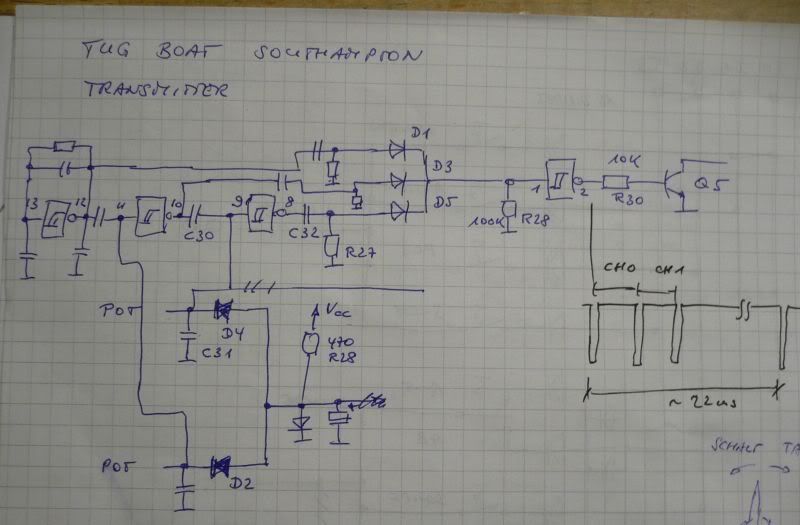 TUG BOAT SOUTHAMPTON
TRANSMITTER
D1
D3
D5
10K
Q5
R30
1
2
100K
R28
13
12
11
10
9
8
C30
C32
R27
CH0
CH1
POT
D4
C31
Vcc
470
R28
~ 22ms
POT
D2
SCHALT TA